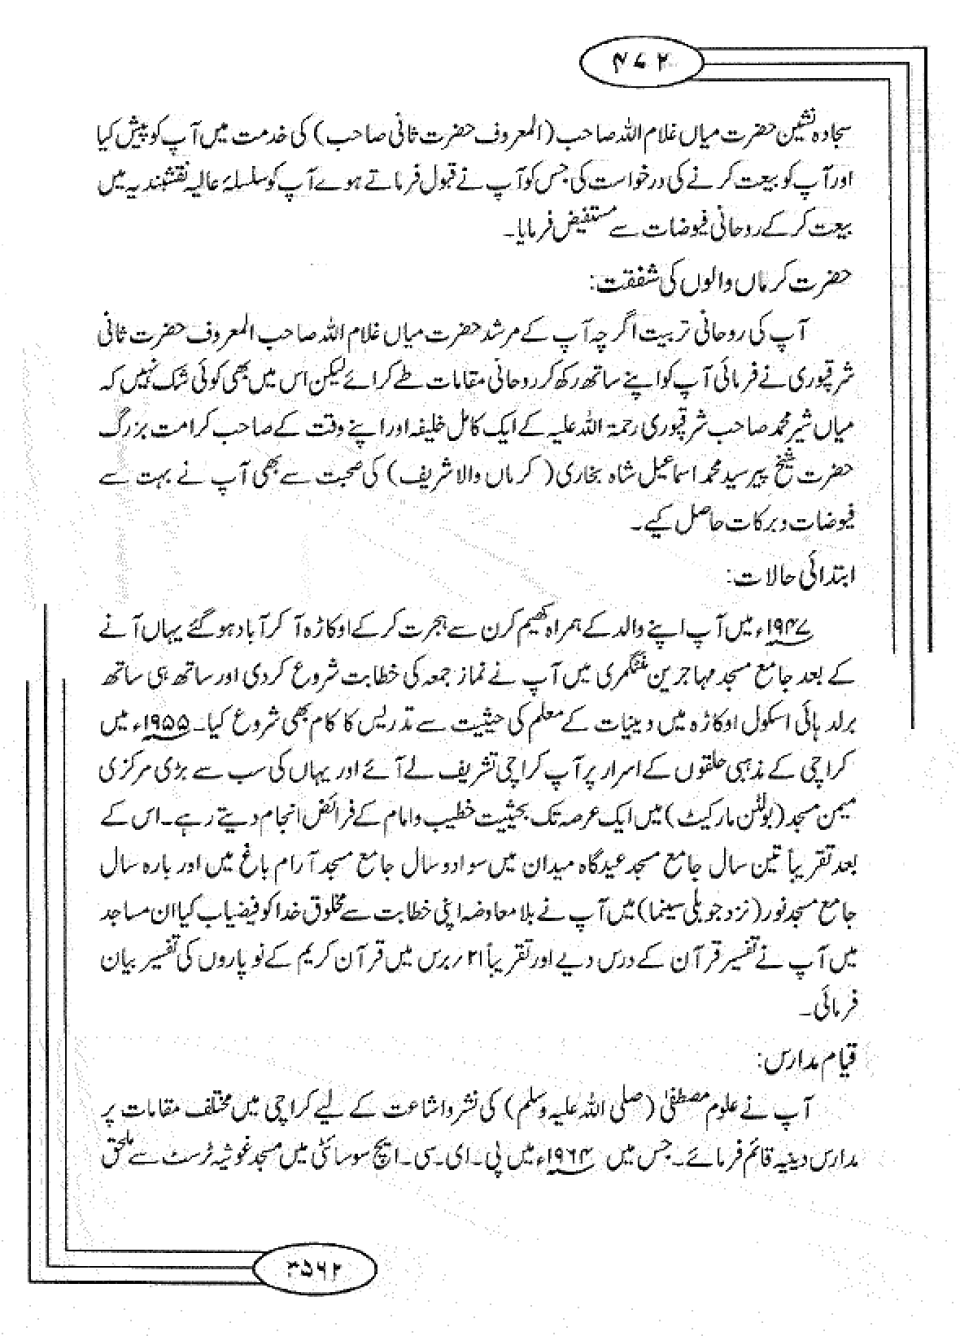 ۴۷۲
سجادہ نشین حضرت میاں غلام اللہ صاحب (المعروف حضرت ثانی صاحب) کی خدمت میں آپ کو پیش کیا
اور آپ کو بیعت کرنے کی درخواست کی جس کو آپ نے قبول فرماتے ہوے آپ کو سلسلۂ عالیہ نقشبندیہ میں
بیعت کر کے روحانی فیوضات سے مستفیض فرمایا۔
حضرت کرماں والوں کی شفقت:
آپ کی روحانی تربیت اگرچہ آپ کے مرشد حضرت میاں غلام اللہ صاحب المعروف حضرت ثانی
شرقپوری نے فرمائی آپ کو اپنے ساتھ رکھ کر روحانی مقامات طے کرائے لیکن اس میں بھی کوئی شک نہیں کہ
میاں شیر محمد صاحب شرقپوری رحمۃ اللہ علیہ کے ایک کامل خلیفہ اور اپنے وقت کے صاحب کرامت بزرگ
حضرت شیخ پیر سید محمد اسماعیل شاہ بخاری (کرماں والا شریف) کی صحبت سے بھی آپ نے بہت سے
فیوضات و برکات حاصل کیے۔
ابتدائی حالات:
۱۹۴۷ء میں آپ اپنے والد کے ہمراہ کھیم کرن سے ہجرت کر کے اوکاڑہ آ کر آباد ہو گئے یہاں آنے
کے بعد جامع مسجد مہاجرین منٹگمری میں آپ نے نماز جمعہ کی خطابت شروع کر دی اور ساتھ ہی ساتھ
برلد ہائی اسکول اوکاڑہ میں دینیات کے معلم کی حیثیت سے تدریس کا کام بھی شروع کیا۔ ۱۹۵۵ء میں
کراچی کے مذہبی حلقوں کے اسرار پر آپ کراچی تشریف لے آئے اور یہاں کی سب سے بڑی مرکزی
میمن مسجد (بولٹن مارکیٹ) میں ایک عرصہ تک بحیثیت خطیب و امام کے فرائض انجام دیتے رہے۔ اس کے
بعد تقریباً تین سال جامع مسجد عیدگاہ میدان میں سوا دو سال جامع مسجد آرام باغ میں اور بارہ سال
جامع مسجد نور (نزد جوبلی سینما) میں آپ نے بلا معاوضہ اپنی خطابت سے مخلوق خدا کو فیضیاب کیا ان مساجد
میں آپ نے تفسیر قرآن کے درس دیے اور تقریباً ۲۱؍ برس میں قرآن کریم کے نو پاروں کی تفسیر بیان
فرمائی۔
قیام مدارس:
آپ نے علوم مصطفیٰ (صلی اللہ علیہ وسلم) کی نشر و اشاعت کے لیے کراچی میں مختلف مقامات پر
مدارس دینیہ قائم فرمائے۔ جس میں ۱۹۶۴ء میں پی۔ای۔سی۔ایچ سوسائٹی میں مسجد غوثیہ ٹرسٹ سے ملحق
۳۵۶۲